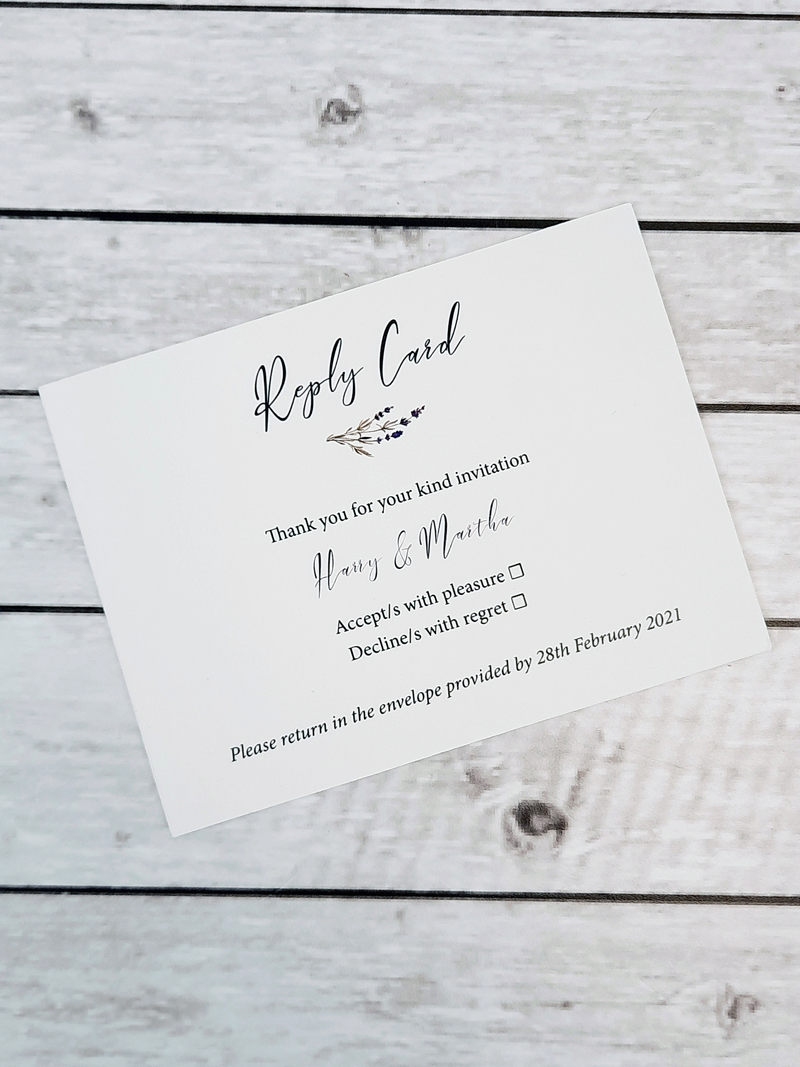 Reply Card
Thank you for your kind invitation
Harry & Martha
Accept/s with pleasure ☐
Decline/s with regret ☐
Please return in the envelope provided by 28th February 2021